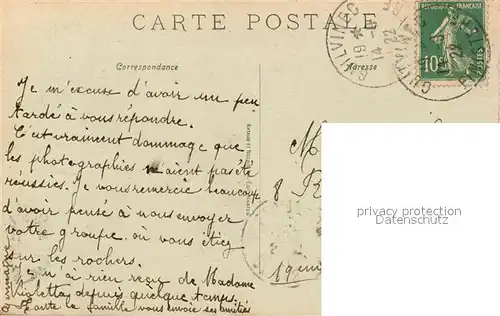 CARTE POSTALE
Correspondance
Adresse
GUILVINEC
14
22
RÉPUBLIQUE FRANÇAISE
10
POSTES
Je m'excuse d'avoir un peu
tardé à vous répondre.
C'est vraiment dommage que
les photographies n'aient pas été
réussies. Je vous remercie beaucoup
d'avoir pensé à nous envoyer
votre groupe où vous étiez
sur les rochers.
Je n'ai rien reçu de Madame
Violetta depuis quelque temps.
Toute la famille vous envoie ses amitiés
Germaine
M
8 R
19em
privacy protection
Datenschutz